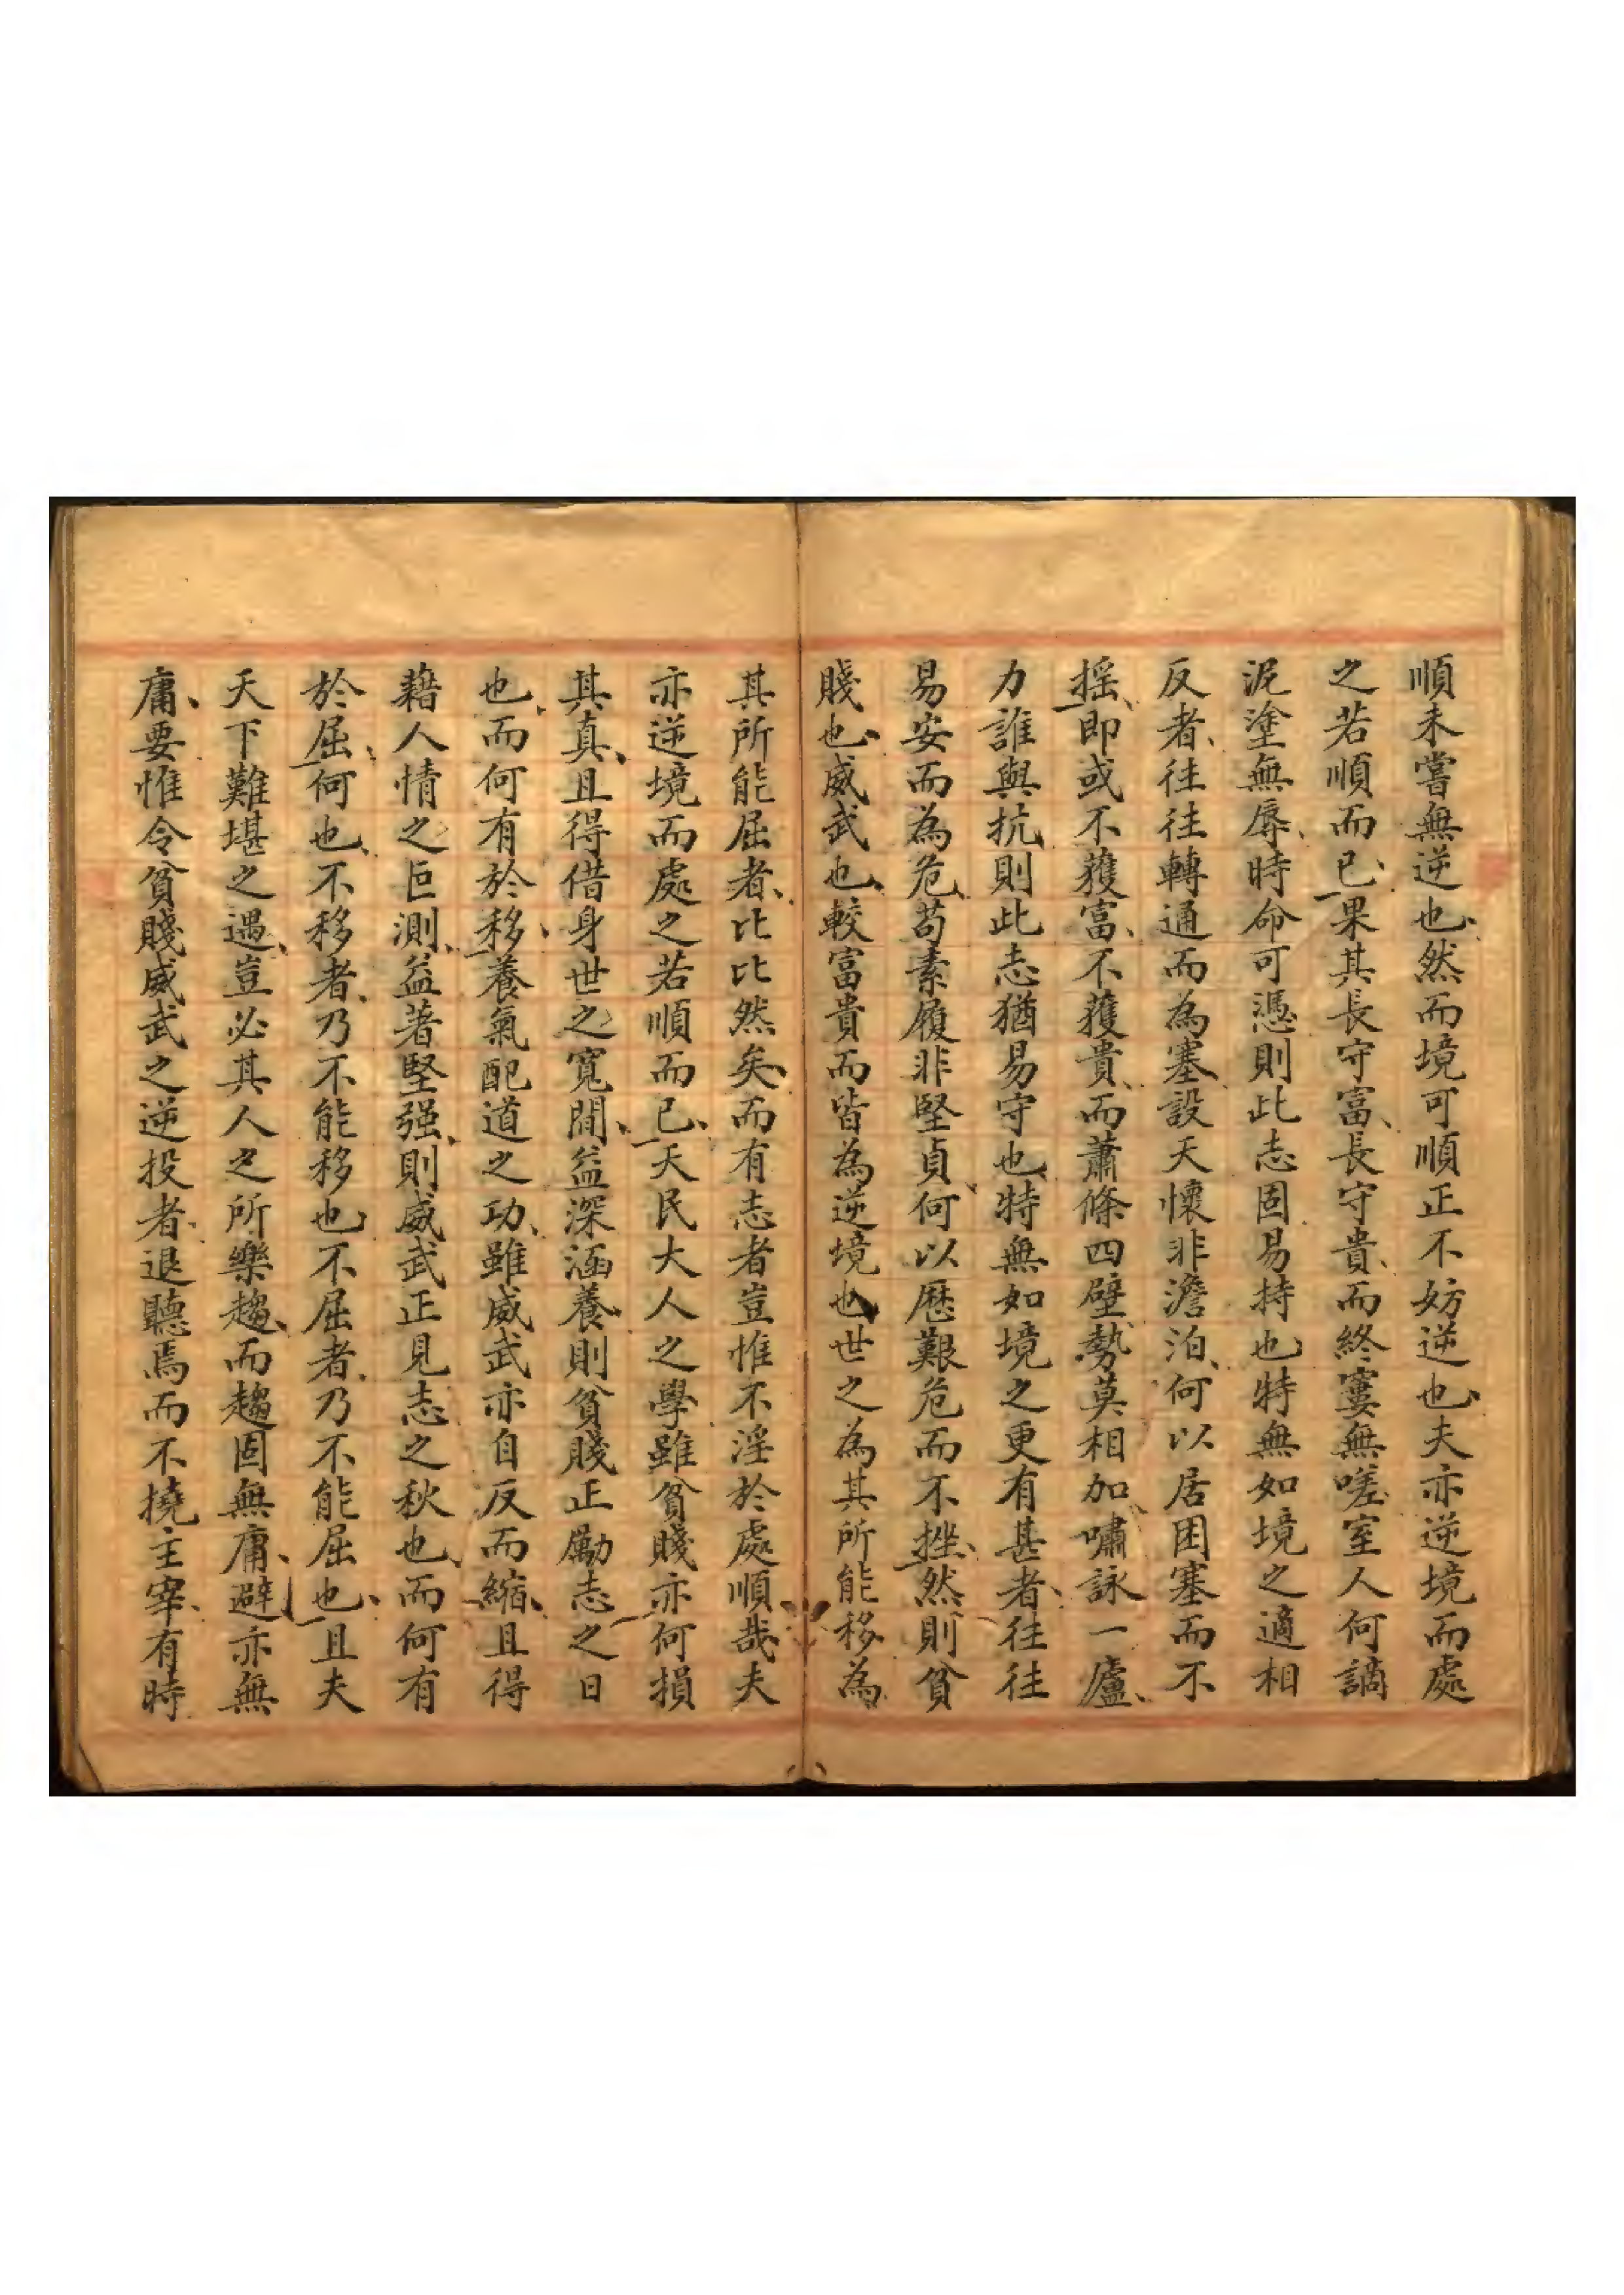 順未嘗無逆也然而境可順正不妨逆也夫亦逆境而處
之若順而已果其長守富長守貴而終窶無嗟室人何謫
泥塗無辱時命可憑則此志固易持也特無如境之適相
反者往往轉通而為塞設天懷非澹泊何以居困塞而不
搖即或不獲富不獲貴而蕭條四壁勢莫相加嘯詠一廬
力誰與抗則此志猶易守也特無如境之更有甚者往往
易安而為危苟素履非堅貞何以歷艱危而不挫然則貧
賤也威武也較富貴而皆為逆境也世之為其所能移為
其所能屈者比比然矣而有志者豈惟不淫於處順哉夫
亦逆境而處之若順而已天民大人之學雖貧賤亦何損
其真且得借身世之寬閒益深涵養則貧賤正勵志之日
也而何有於移養氣配道之功雖威武亦自反而縮且得
藉人情之叵測益著堅强則威武正見志之秋也而何有
於屈何也不移者乃不能移也不屈者乃不能屈也且夫
天下難堪之遇豈必其人之所樂趨而趨固無庸避亦無
庸要惟令貧賤威武之逆投者退聽焉而不撓主宰有時